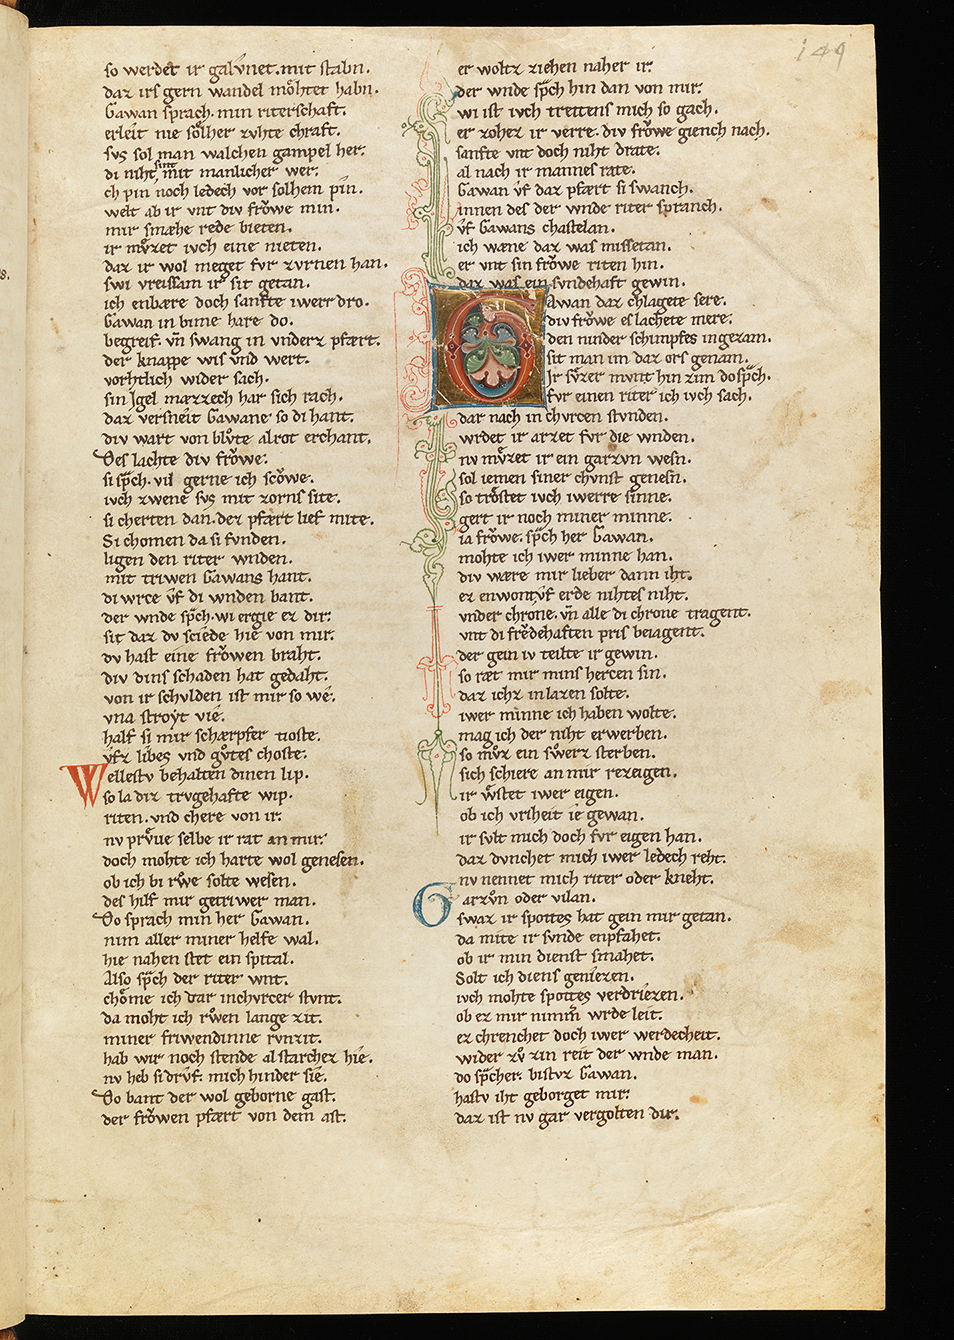 149
so werdet ir galvnet. mit stabn.
daz irs gern wandel mohtet habn.
Gawan sprach. min riterschaft.
erleit nie solher zvhte chraft.
svs sol man walchen gampel her.
di niht sint mit manlicher wer.
ch pin noch ledech vor solhem pin.
welt ab ir vnt div frowe min.
mir smæhe rede bieten.
ir mvzet ivch eine nieten.
daz ir wol meget fvr zvrnen han.
swi vreislam ir sit getan.
ich enbære doch sanfte iwerr dro.
Gawan in bime hare do.
begreif. vn swang in vnderz pfært.
der knappe wis vnd wert.
vorhtlich wider sach.
sin Igel mæzzech har sich rach.
daz versneit Gawane so di hant.
div wart von blvte alrot erchant.
Des lachte div frowe.
si spch. vil gerne ich scowe.
ivch zwene svs mit zorns site.
si cherten dan. dez pfært lief mite.
Si chomen da si fvnden.
ligen den riter wnden.
mit triwen Gawans hant.
di wrce vf di wnden bant.
der wnde spch. wi ergie ez dir.
sit daz dv sciede hie von mir.
dv hast eine frowen braht.
div dins schaden hat gedaht.
von ir schvlden ist mir so we.
vna stroyt vie.
half si mir schærpfer tioste.
vfz libes vnd gvtes choste.
Wellestv behalten dinen lip.
so la diz trvgehafte wip.
riten. vnd chere von ir.
nv prve selbe ir rat an mir.
doch mohte ich harte wol genesen.
ob ich bi rwe solte wesen.
des hilf mir getriwer man.
Do sprach min her Gawan.
nim aller miner helfe wal.
hie nahen stet ein spital.
Also spch der riter wnt.
chome ich dar inchvrcer stvnt.
da moht ich rwen lange zit.
miner friwendinne rvnzit.
hab wir noch stende al starchez hie.
nv heb si drvf. mich hinder sie.
Do bant der wol geborne gast.
der frowen pfært von dem ast.
er woltz ziehen naher ir.
der wnde spch hin dan von mir.
wi ist ivch trettens mich so gach.
er zohez ir verre. div frowe giench nach.
sanfte vnt doch niht drate.
al nach ir mannes rate.
Gawan vf daz pfært si swanch.
innen des der wnde riter spranch.
vf Gawans chastelan.
ich wæne daz was missetan.
er vnt sin frowe riten hin.
daz was ein svndehaft gewin.
Gawan daz chlagete sere.
div frowe es lachete mere.
den ninder schimpfes ingezam.
sit man im daz ors genam.
Ir svzer mvnt hin zim do spch.
fvr einen riter ich ivch sach.
dar nach in chvrcen stvnden.
wrdet ir arzet fvr die wnden.
nv mvzet ir ein garzvn wesn.
sol iemen siner chvnst genesn.
so trostet ivch iwerre sinne.
gert ir noch miner minne.
ia frowe. spch her Gawan.
mohte ich iwer minne han.
div wære mir lieber dann iht.
ez enwont vf erde nihtes niht.
vnder chrone. vn alle di chrone tragent.
vnt di fredehaften pris beiagent.
der gein iv teilte ir gewin.
so ræt mir mins hercen sin.
daz ichz in lazen solte.
iwer minne ich haben wolte.
mag ich der niht erwerben.
so mvz ein swerz sterben.
sich schiere an mir rezeigen.
ir wstet iwer eigen.
ob ich vriheit ie gewan.
ir svlt mich doch fvr eigen han.
daz dvnchet mich iwer ledech reht.
nv nennet mich riter oder kneht.
Garzvn oder vilan.
swaz ir spottes hat gein mir getan.
da mite ir svnde enpfahet.
ob ir min dienst smahet.
Solt ich diens geniezen.
ivch mohte spottes verdriezen.
ob ez mir nimm wrde leit.
ez chrenchet doch iwer werdecheit.
wider zv zin reit der wnde man.
do spcher. bistvz Gawan.
hastv iht geborget mir.
daz ist nv gar vergolten dir.